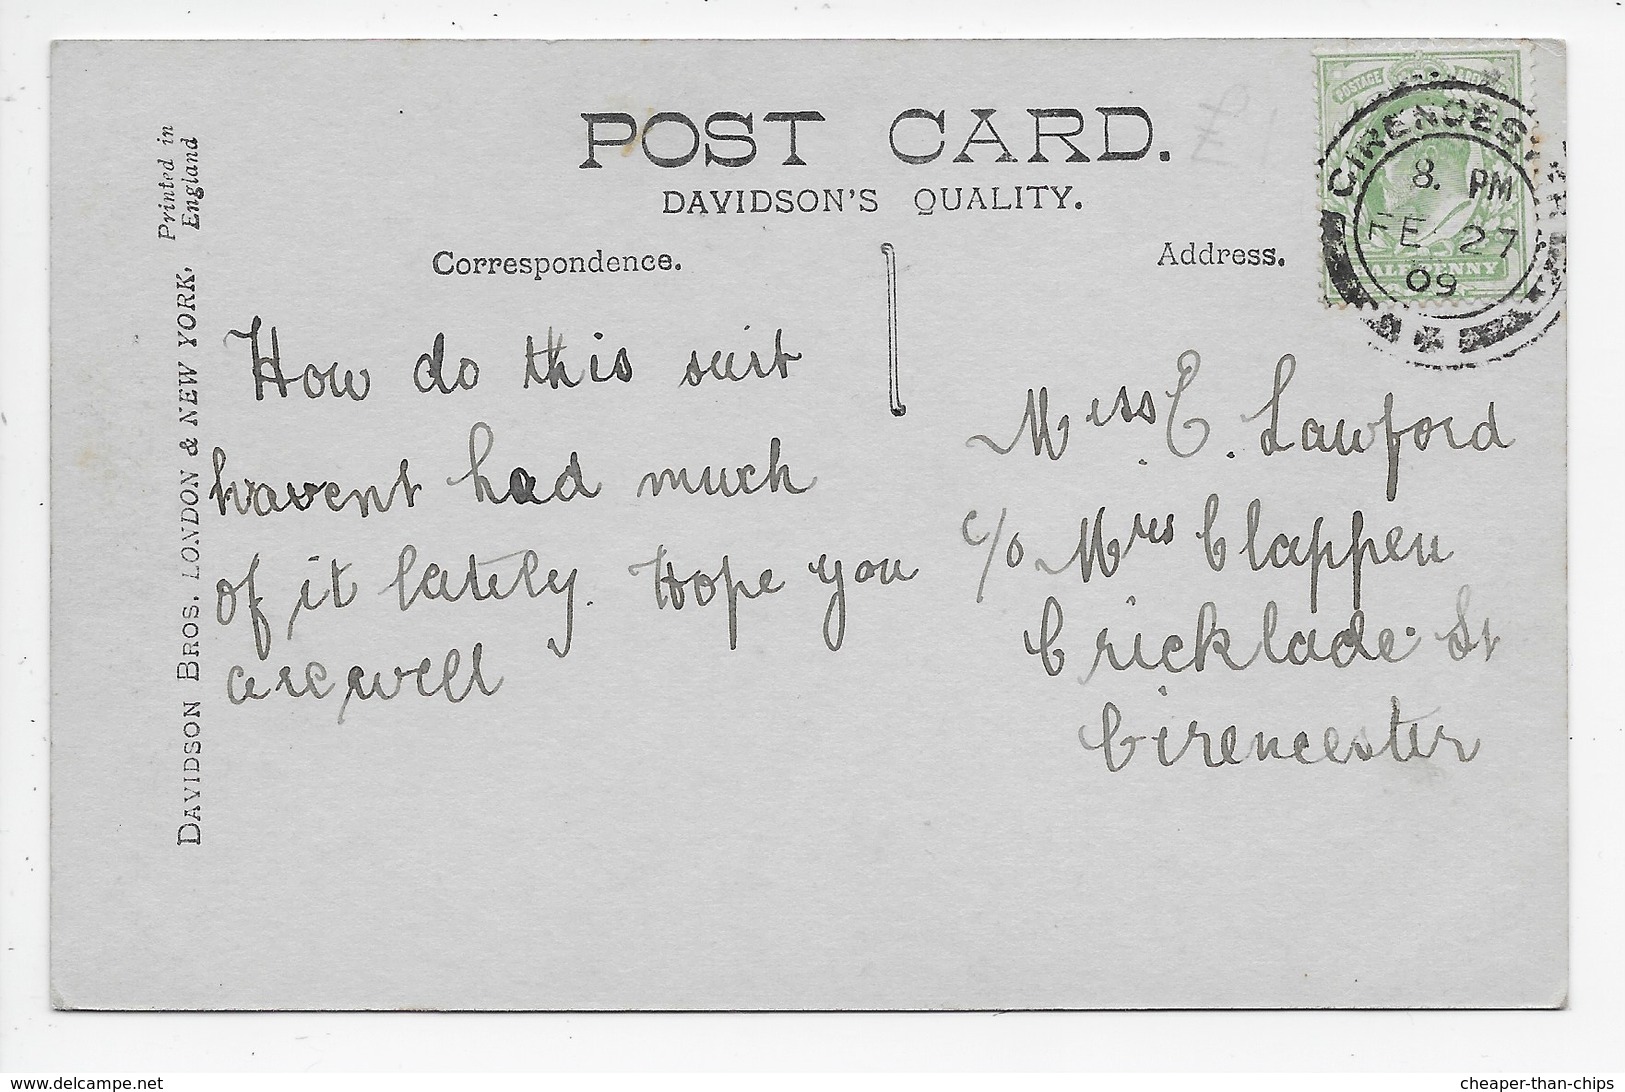 POST CARD.
DAVIDSON'S QUALITY.
Correspondence.
Address.
Printed in
England
DAVIDSON BROS. LONDON & NEW YORK.
POSTAGE
HALFPENNY
CIRENCESTER
8. PM
FE 27
09
£1
How do this suit
havent had much
of it lately. Hope you
are well
Miss C. Lawford
c/o Mrs Clappen
Cricklade St
Cirencester
delcampe.net
cheaper-than-chips